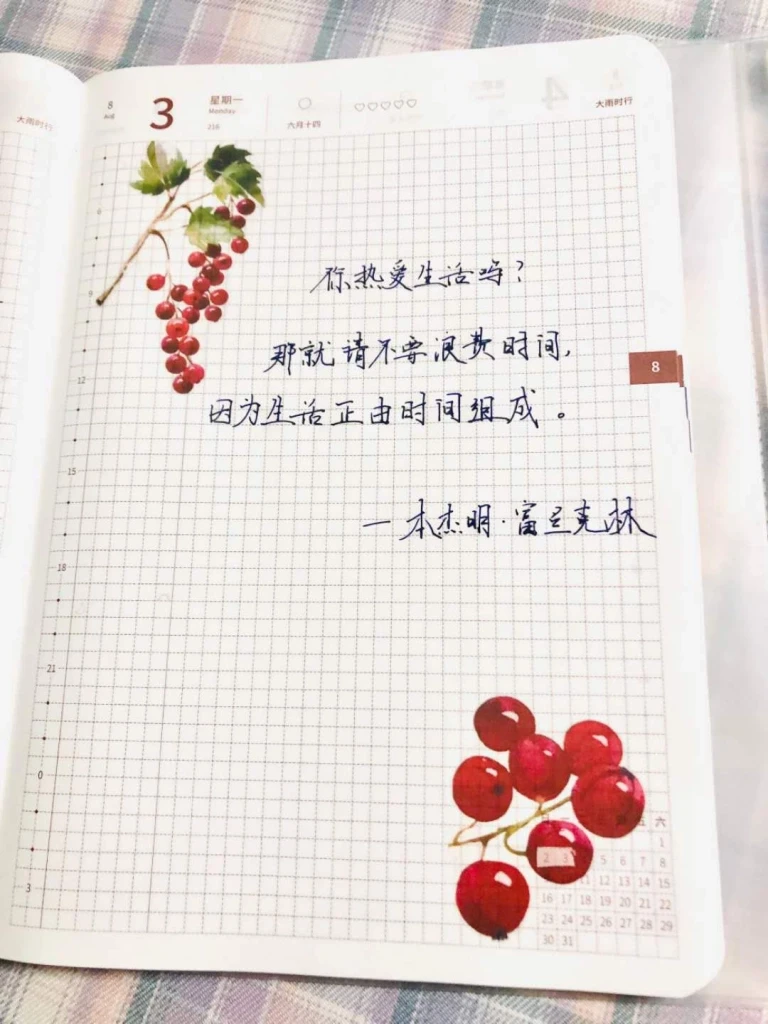 大雨时行
8
Aug
3
星期一
Monday
216
六月十四
大雨时行
你热爱生活吗？
那就请不要浪费时间，
因为生活正由时间组成。
— 本杰明·富兰克林
8
12
15
18
21
0
3
六
1
2 3 5 6 7 8
11 12 13 14 15
16 17 18 19 20 21 22
23 24 25 26 27 28 29
30 31